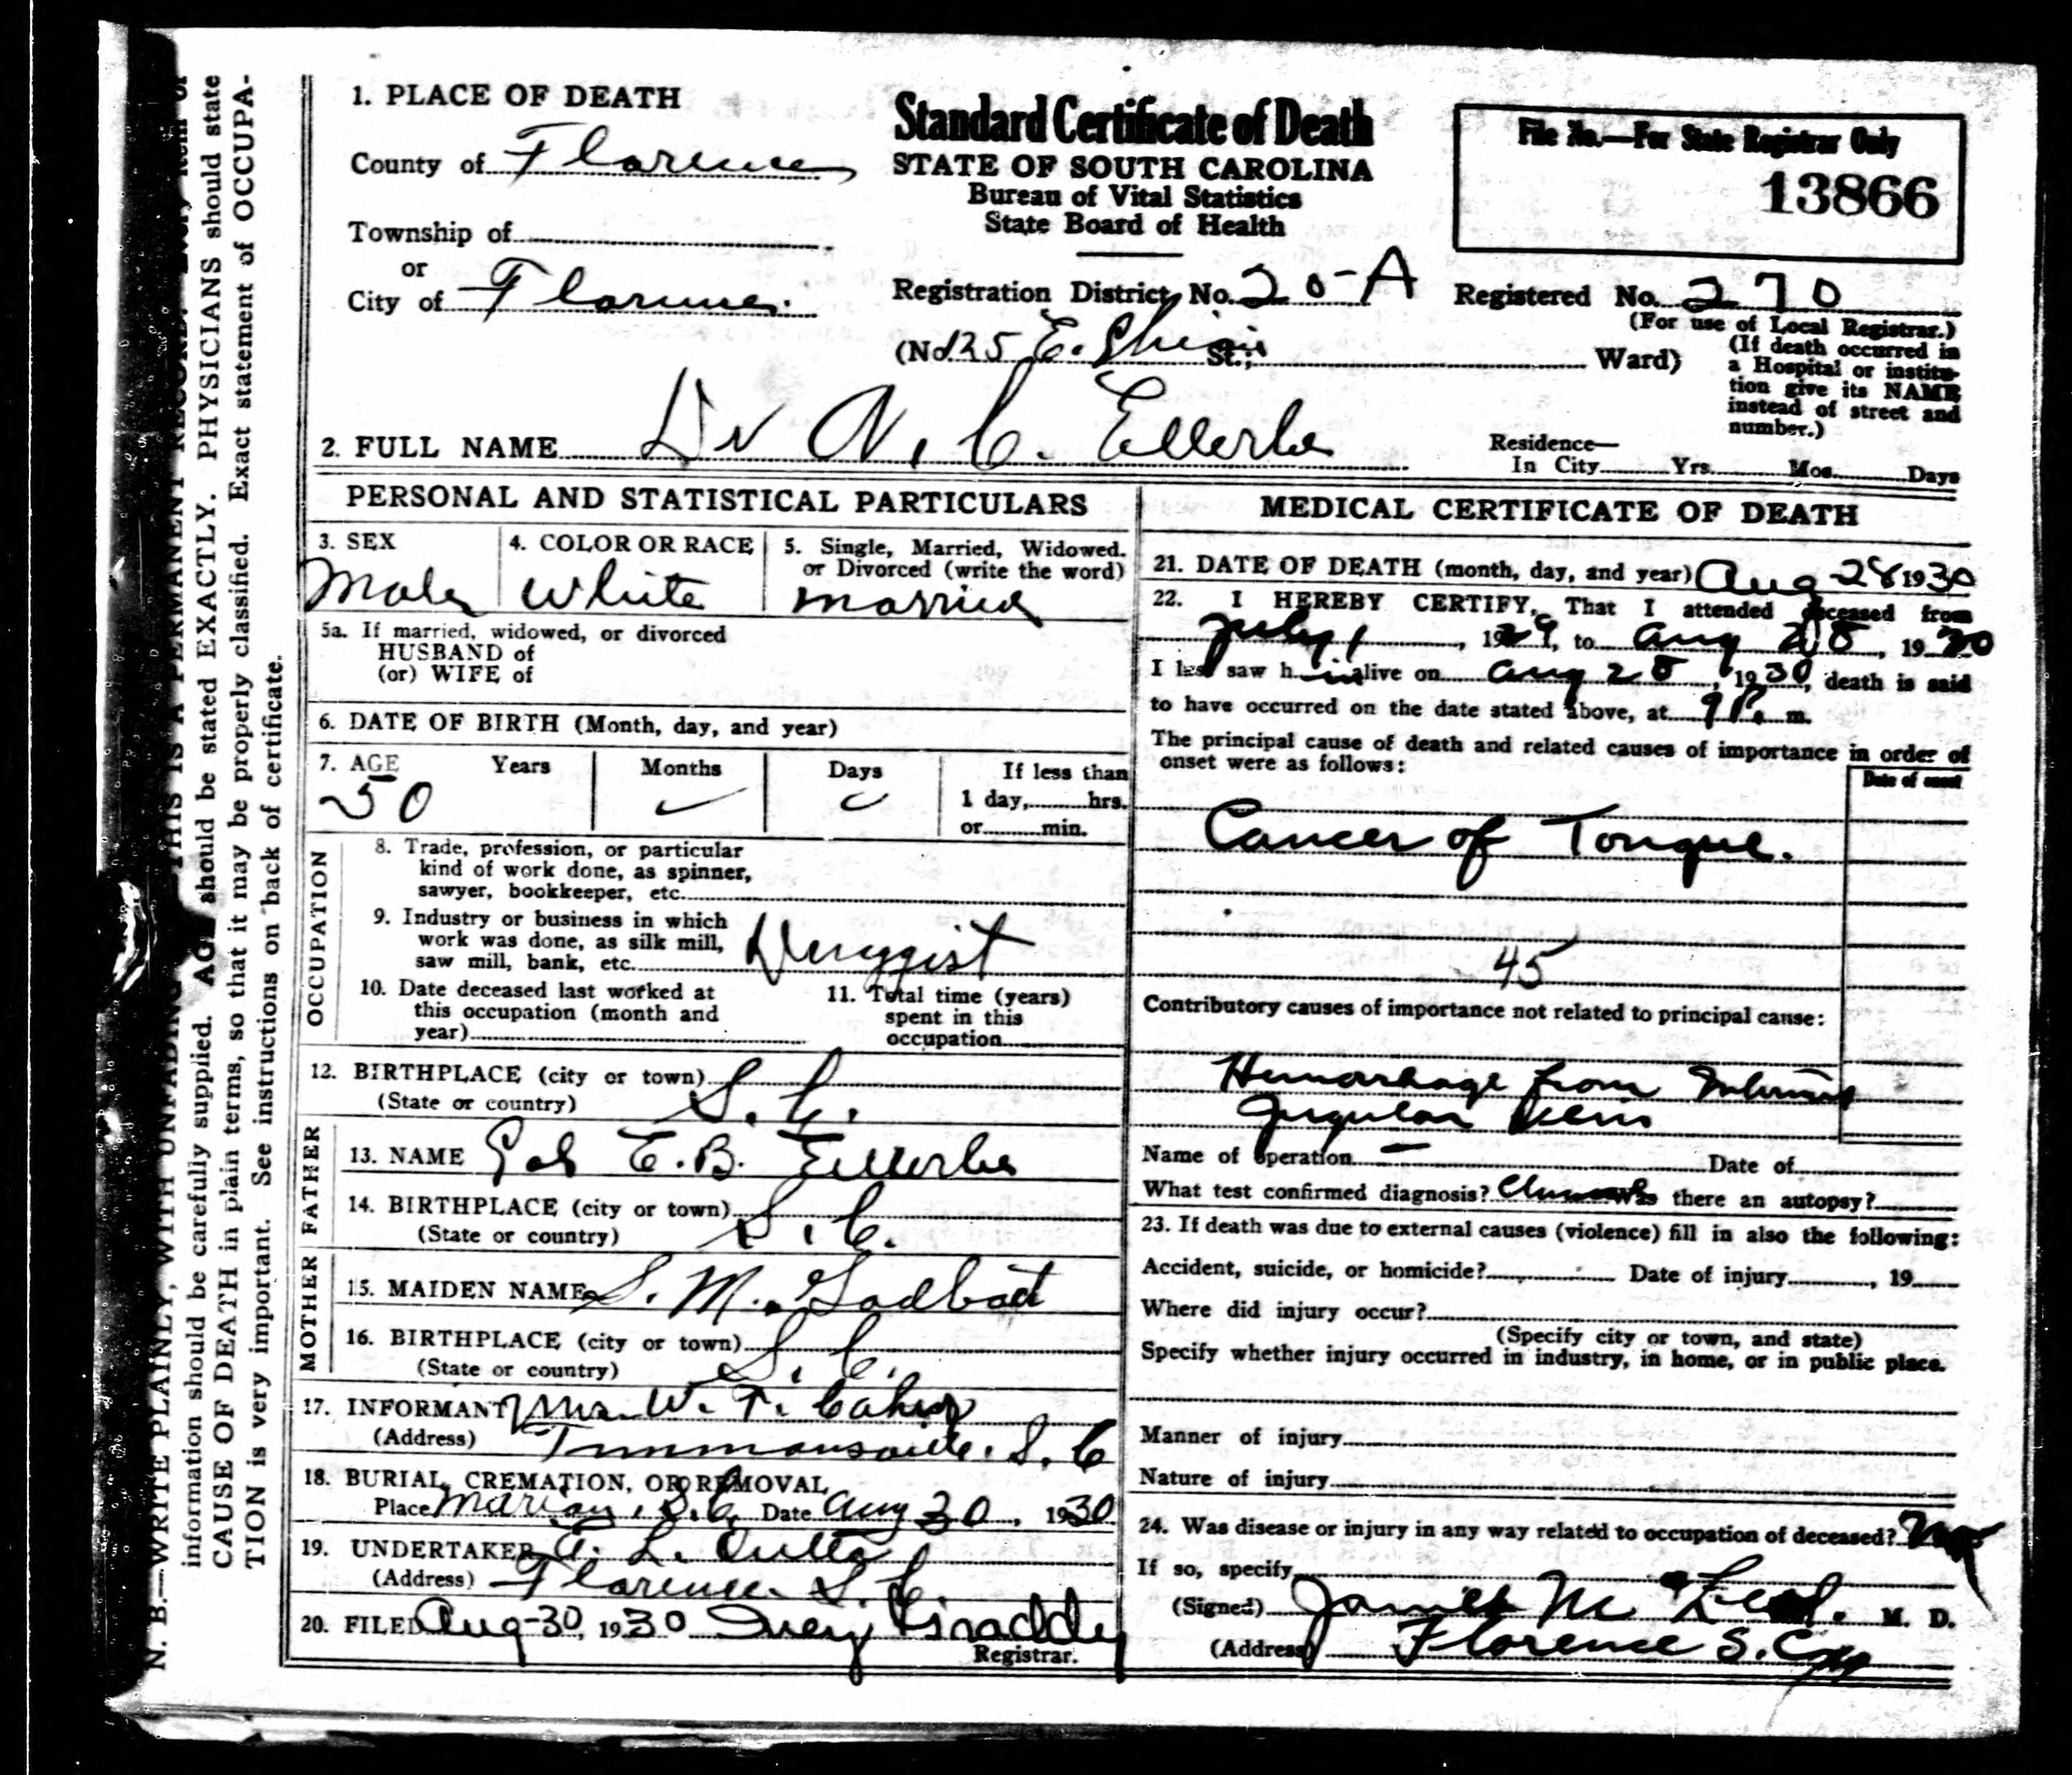 N. B.—WRITE PLAINLY, WITH UNFADING THIS IS A PERMANENT RECORD. Every item of
information should be carefully supplied. AGE should be stated EXACTLY. PHYSICIANS should state
CAUSE OF DEATH in plain terms, so that it may be properly classified. Exact statement of OCCUPA-
TION is very important. See instructions on back of certificate.
1. PLACE OF DEATH
County of Florence
Township of
or
City of Florence
Standard Certificate of Death
STATE OF SOUTH CAROLINA
Bureau of Vital Statistics
State Board of Health
File No.—For State Registrar Only
13866
Registration District No. 20-A
Registered No. 270
(For use of Local Registrar.)
(No. 125 E. St.; Ward)
(If death occurred in
a Hospital or institu-
tion give its NAME
instead of street and
number.)
2. FULL NAME Dr N. C. Ellerbe
Residence—
In City Yrs. Mos. Days
PERSONAL AND STATISTICAL PARTICULARS
3. SEX
Male
4. COLOR OR RACE
White
5. Single, Married, Widowed.
or Divorced (write the word)
married
5a. If married, widowed, or divorced
HUSBAND of
(or) WIFE of
6. DATE OF BIRTH (Month, day, and year)
7. AGE Years Months Days
50
If less than
1 day, hrs.
or min.
OCCUPATION
8. Trade, profession, or particular
kind of work done, as spinner,
sawyer, bookkeeper, etc.
9. Industry or business in which
work was done, as silk mill,
saw mill, bank, etc. Druggist
10. Date deceased last worked at
this occupation (month and
year)
11. Total time (years)
spent in this
occupation
12. BIRTHPLACE (city or town) S. C.
(State or country)
FATHER
13. NAME E. B. Ellerbe
14. BIRTHPLACE (city or town) S. C.
(State or country)
MOTHER
15. MAIDEN NAME S. M. Godbolt
16. BIRTHPLACE (city or town) S. C.
(State or country)
17. INFORMANT Mrs. W. T.
(Address) Timmonsville, S. C
18. BURIAL, CREMATION, OR REMOVAL
Place Marion, S. C. Date Aug 30, 1930
19. UNDERTAKER
(Address) Florence S. C
20. FILED Aug-30, 1930
Registrar.
MEDICAL CERTIFICATE OF DEATH
21. DATE OF DEATH (month, day, and year) Aug 28 1930
22. I HEREBY CERTIFY, That I attended deceased from
July 1, 1929, to Aug 28, 1930
I last saw him alive on Aug 28, 1930, death is said
to have occurred on the date stated above, at 9 P. m.
The principal cause of death and related causes of importance in order of
onset were as follows:
Date of onset
Cancer of Tongue.
45
Contributory causes of importance not related to principal cause:
Hemorrhage from Internal
Jugular Vein
Name of operation — Date of
What test confirmed diagnosis? Clinical Was there an autopsy?
23. If death was due to external causes (violence) fill in also the following:
Accident, suicide, or homicide? Date of injury , 19
Where did injury occur?
(Specify city or town, and state)
Specify whether injury occurred in industry, in home, or in public place.
Manner of injury
Nature of injury
24. Was disease or injury in any way related to occupation of deceased? No
If so, specify
(Signed) James McLeod. M. D.
(Address) Florence S. C